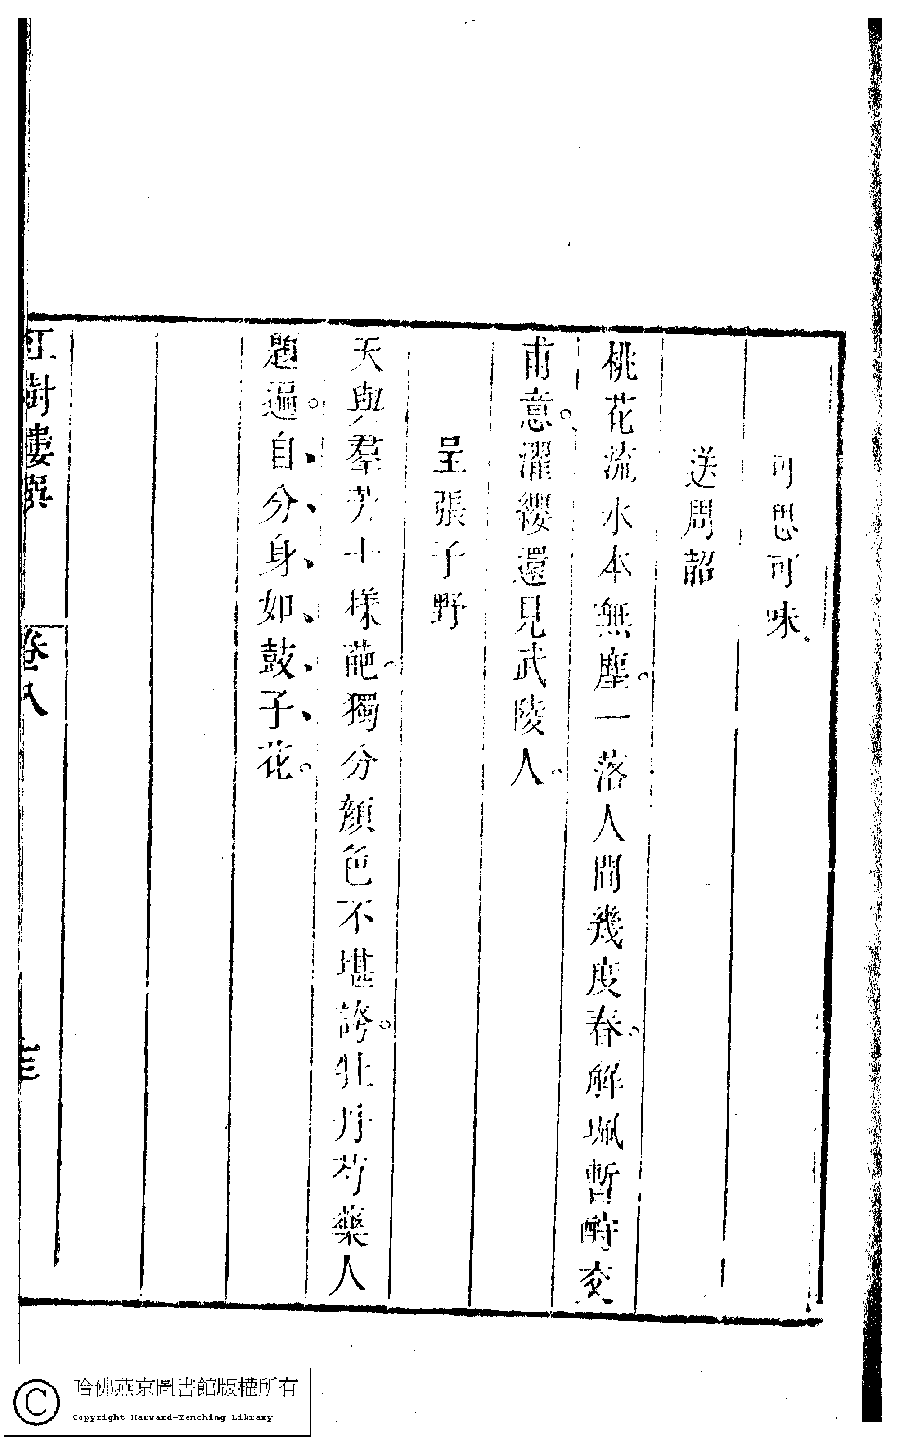 可思可味
送周韶
桃花流水本無塵。一落人間幾度春。解珮暫酧交
甫意。濯纓還見武陵人。
呈張子野
天與羣芳十樣葩。獨分顔色不堪誇。牡丹芍藥人
題遍。自分身如鼓子花。
紅樹樓撰 卷八
哈佛燕京圖書館版權所有
Copyright Harvard-Yenching Library